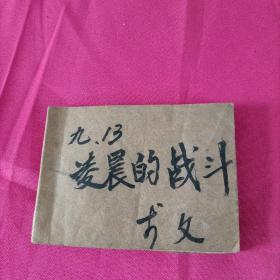 九.13
凌晨的战斗
文